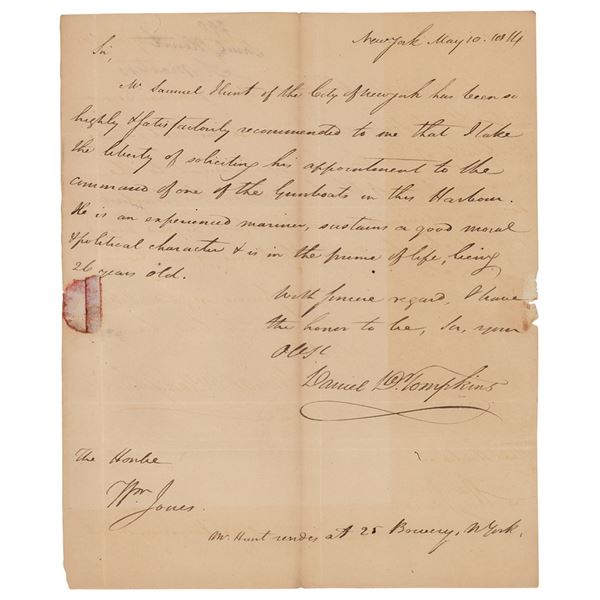 New York May 10. 1814
Sir,
Mr Samuel Hunt of the City of New York has been so
highly & satisfactorily recommended to me that I take
the liberty of soliciting his appointment to the
command of one of the Gunboats in this Harbour.
He is an experienced mariner, sustains a good moral
& political character & is in the prime of life, being
26 years old.
With sincere regard, I have
the honor to be, Sir, your
Ob St
Daniel D. Tompkins
The Honble
Wm Jones.
Mr. Hunt resides at 25 Bowery, N York.